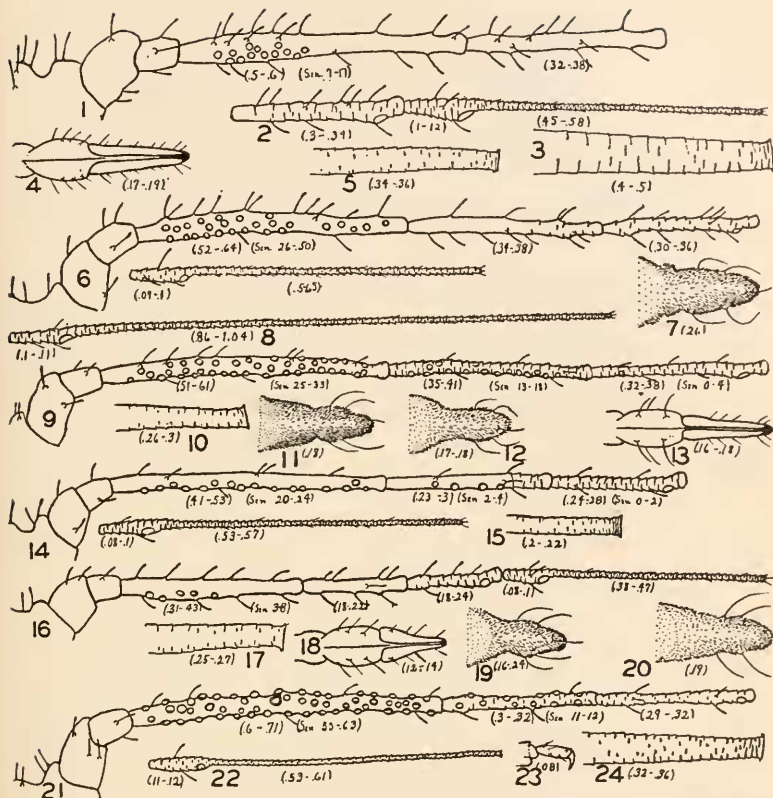 1 (.5-.6) (Sen 7-17) (.32-.38)
2 (.3-.34) (.1-12) (.45-.58)
3 (.4-.5)
4 (.17-.19)
5 (.34-.36)
6 (.52-.64) (Sen 26-50) (.34-.38) (.30-.36)
(.09-.1) (.5-.63)
7 (.26)
(.1-.11) (.86-1.04) 8
9 (.51-.61) (Sen 25-33) (.35-.41) (Sen 13-18) (.32-.38) (Sen 0-4)
(.26-.3) 10
11 (.18)
12 (.17-.18)
13 (.16-.18)
14 (.41-.53) (Sen 20-24) (.23-.3) (Sen 2-4) (.24-.28) (Sen 0-2)
(.08-.1) (.53-.57)
15 (.2-.22)
16 (.31-.43) (Sen 3-8) (.18-.22) (.18-.24) (.08-.1) (.38-.47)
17 (.25-.27)
18 (.12-.14)
19 (.16-.24)
20 (.19)
21 (.6-.71) (Sen 55-63) (.3-.32) (Sen 11-12) (.29-.32)
(.11-.12) 22 (.53-.61)
23 (.08)
24 (.32-.36)